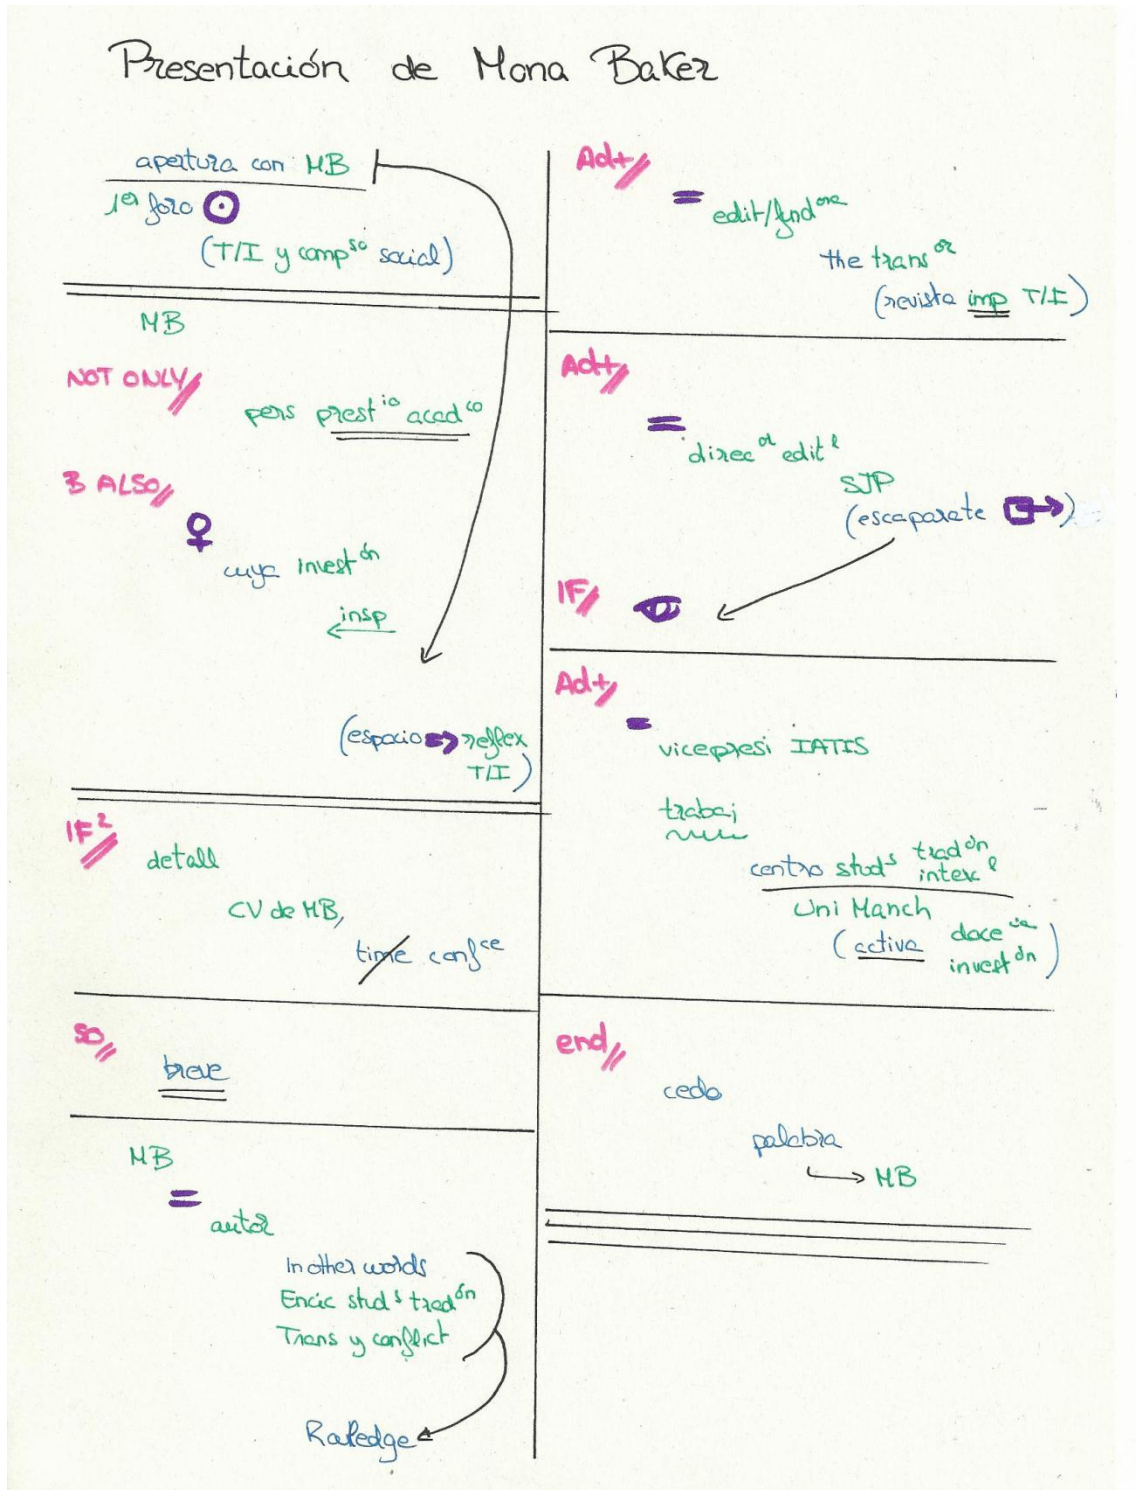 Presentación de Mona Baker
apertura con MB
1er foro
(T/I y compso social)
MB
NOT ONLY//
pers prestio acadco
B ALSO//
cuya investón
insp
(espacio reflex
T/I)
IF2//
detall
CV de MB,
time confce
SO//
breve
MB
=
autor
In other words
Encic studs tradón
Trans y conflict
Ad+//
=
edit/fundora
the transor
(revista imp T/I)
Ad+//
=
direcor editl
SJP
(escaparate )
IF//
Ad+//
=
vicepresi IATIS
trabaj
centro studs tradón
interl
Uni Manch
(activa doceia
investón)
end//
cedo
palabra
MB